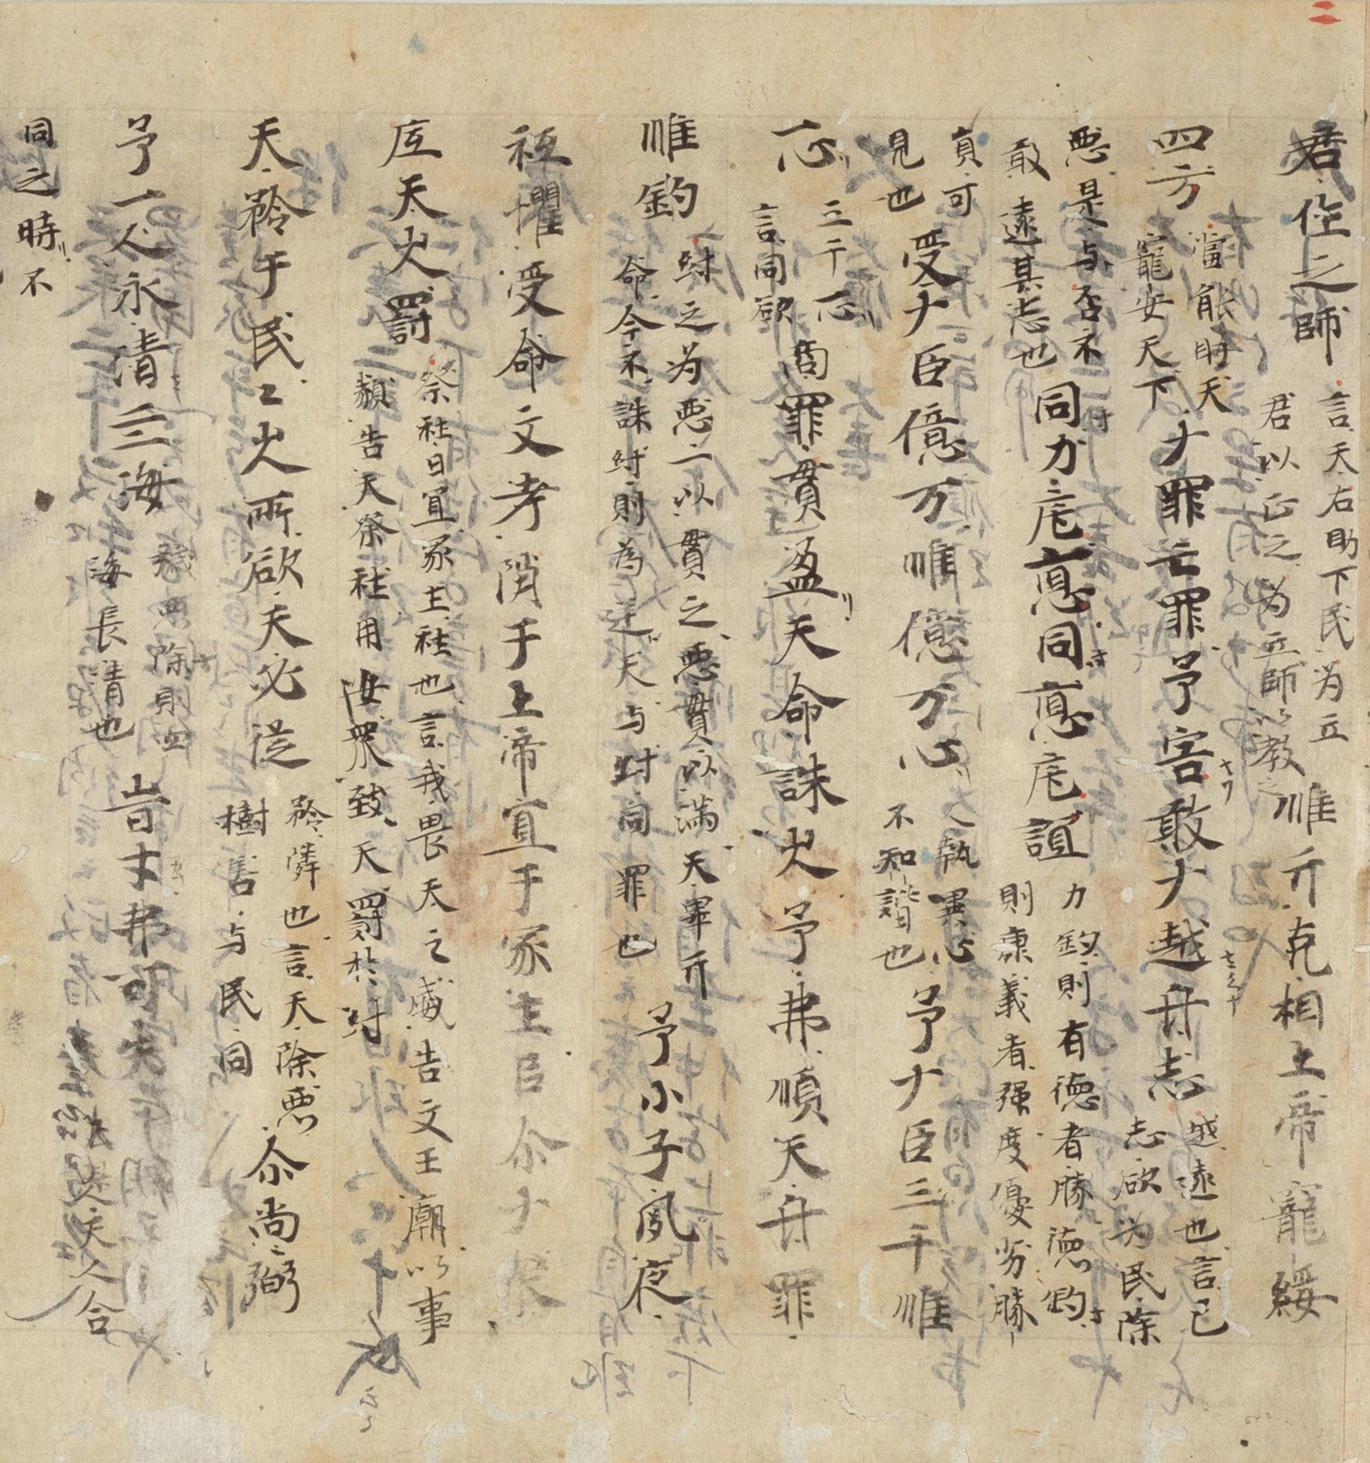 君作之師言天右助下民為立君以正之為立師以教之惟亓克相上帝寵綏
四方當能助天寵安天下ナ罪亡罪予害敢ナ越年志越遠也言己志欲為民除
悪是与否不敢遠其志也同力庑悳同悳庑誼力鈞則有徳者勝徳鈞則康義者强度優劣勝
負可見也受ナ臣億万惟億万心人執異心不知諧也予ナ臣三千惟
一心三千一心言同欲商罪貫盈天命誅火予弗順天年罪
惟鈞紂之為悪一以貫之悪貫以満天畢亓命今不誅紂則為逆天与紂同罪也予小子夙夜
祗懼受命文考䫨于上帝宜于冢土目尒ナ衆
厎天火罰祭社曰宜冢土社也言我畏天之威告文王廟以事類告天祭社用汝衆致天罰於紂
天矜于民〻火所欲天必従矜隣也言天除悪樹善与民同尒尚弼
予一人永清三海穢悪除則四海長清也旹才弗可失言今我伐紂是天人合
同之時不